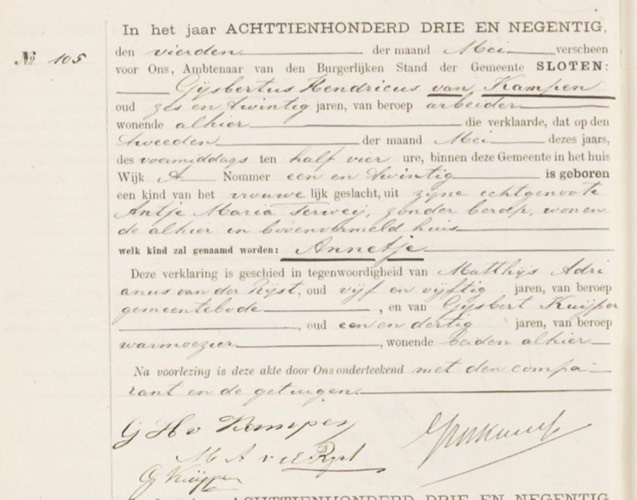 In het jaar ACHTTIENHONDERD DRIE EN NEGENTIG,
No 105 den vierden der maand Mei verscheen
voor Ons, Ambtenaar van den Burgerlijken Stand der Gemeente SLOTEN:
Gijsbertus Hendricus van Kampen
oud zes en twintig jaren, van beroep arbeider
wonende alhier die verklaarde, dat op den
tweeden der maand Mei dezes jaars,
des voormiddags ten half vier ure, binnen deze Gemeente in het huis
Wijk A Nommer een en twintig is geboren
een kind van het vrouwe lijk geslacht, uit zijne echtgenoote
Antje Maria Terweij, zonder beroep, wonen
de alhier in bovenvermeld huis
welk kind zal genaamd worden: Annetje
Deze verklaring is geschied in tegenwoordigheid van Matthijs Adri
anus van der Rijst, oud vijf en vijftig jaren, van beroep
gemeentebode, en van Gijsbert Kuijper
, oud een en dertig jaren, van beroep
warmoezier, wonende beiden alhier
Na voorlezing is deze akte door Ons onderteekend met den compa-
rant en de getuigen.
G H v Kampen
M A v d Rijst
G Kuijper
In het jaar ACHTTIENHONDERD DRIE EN NEGENTIG